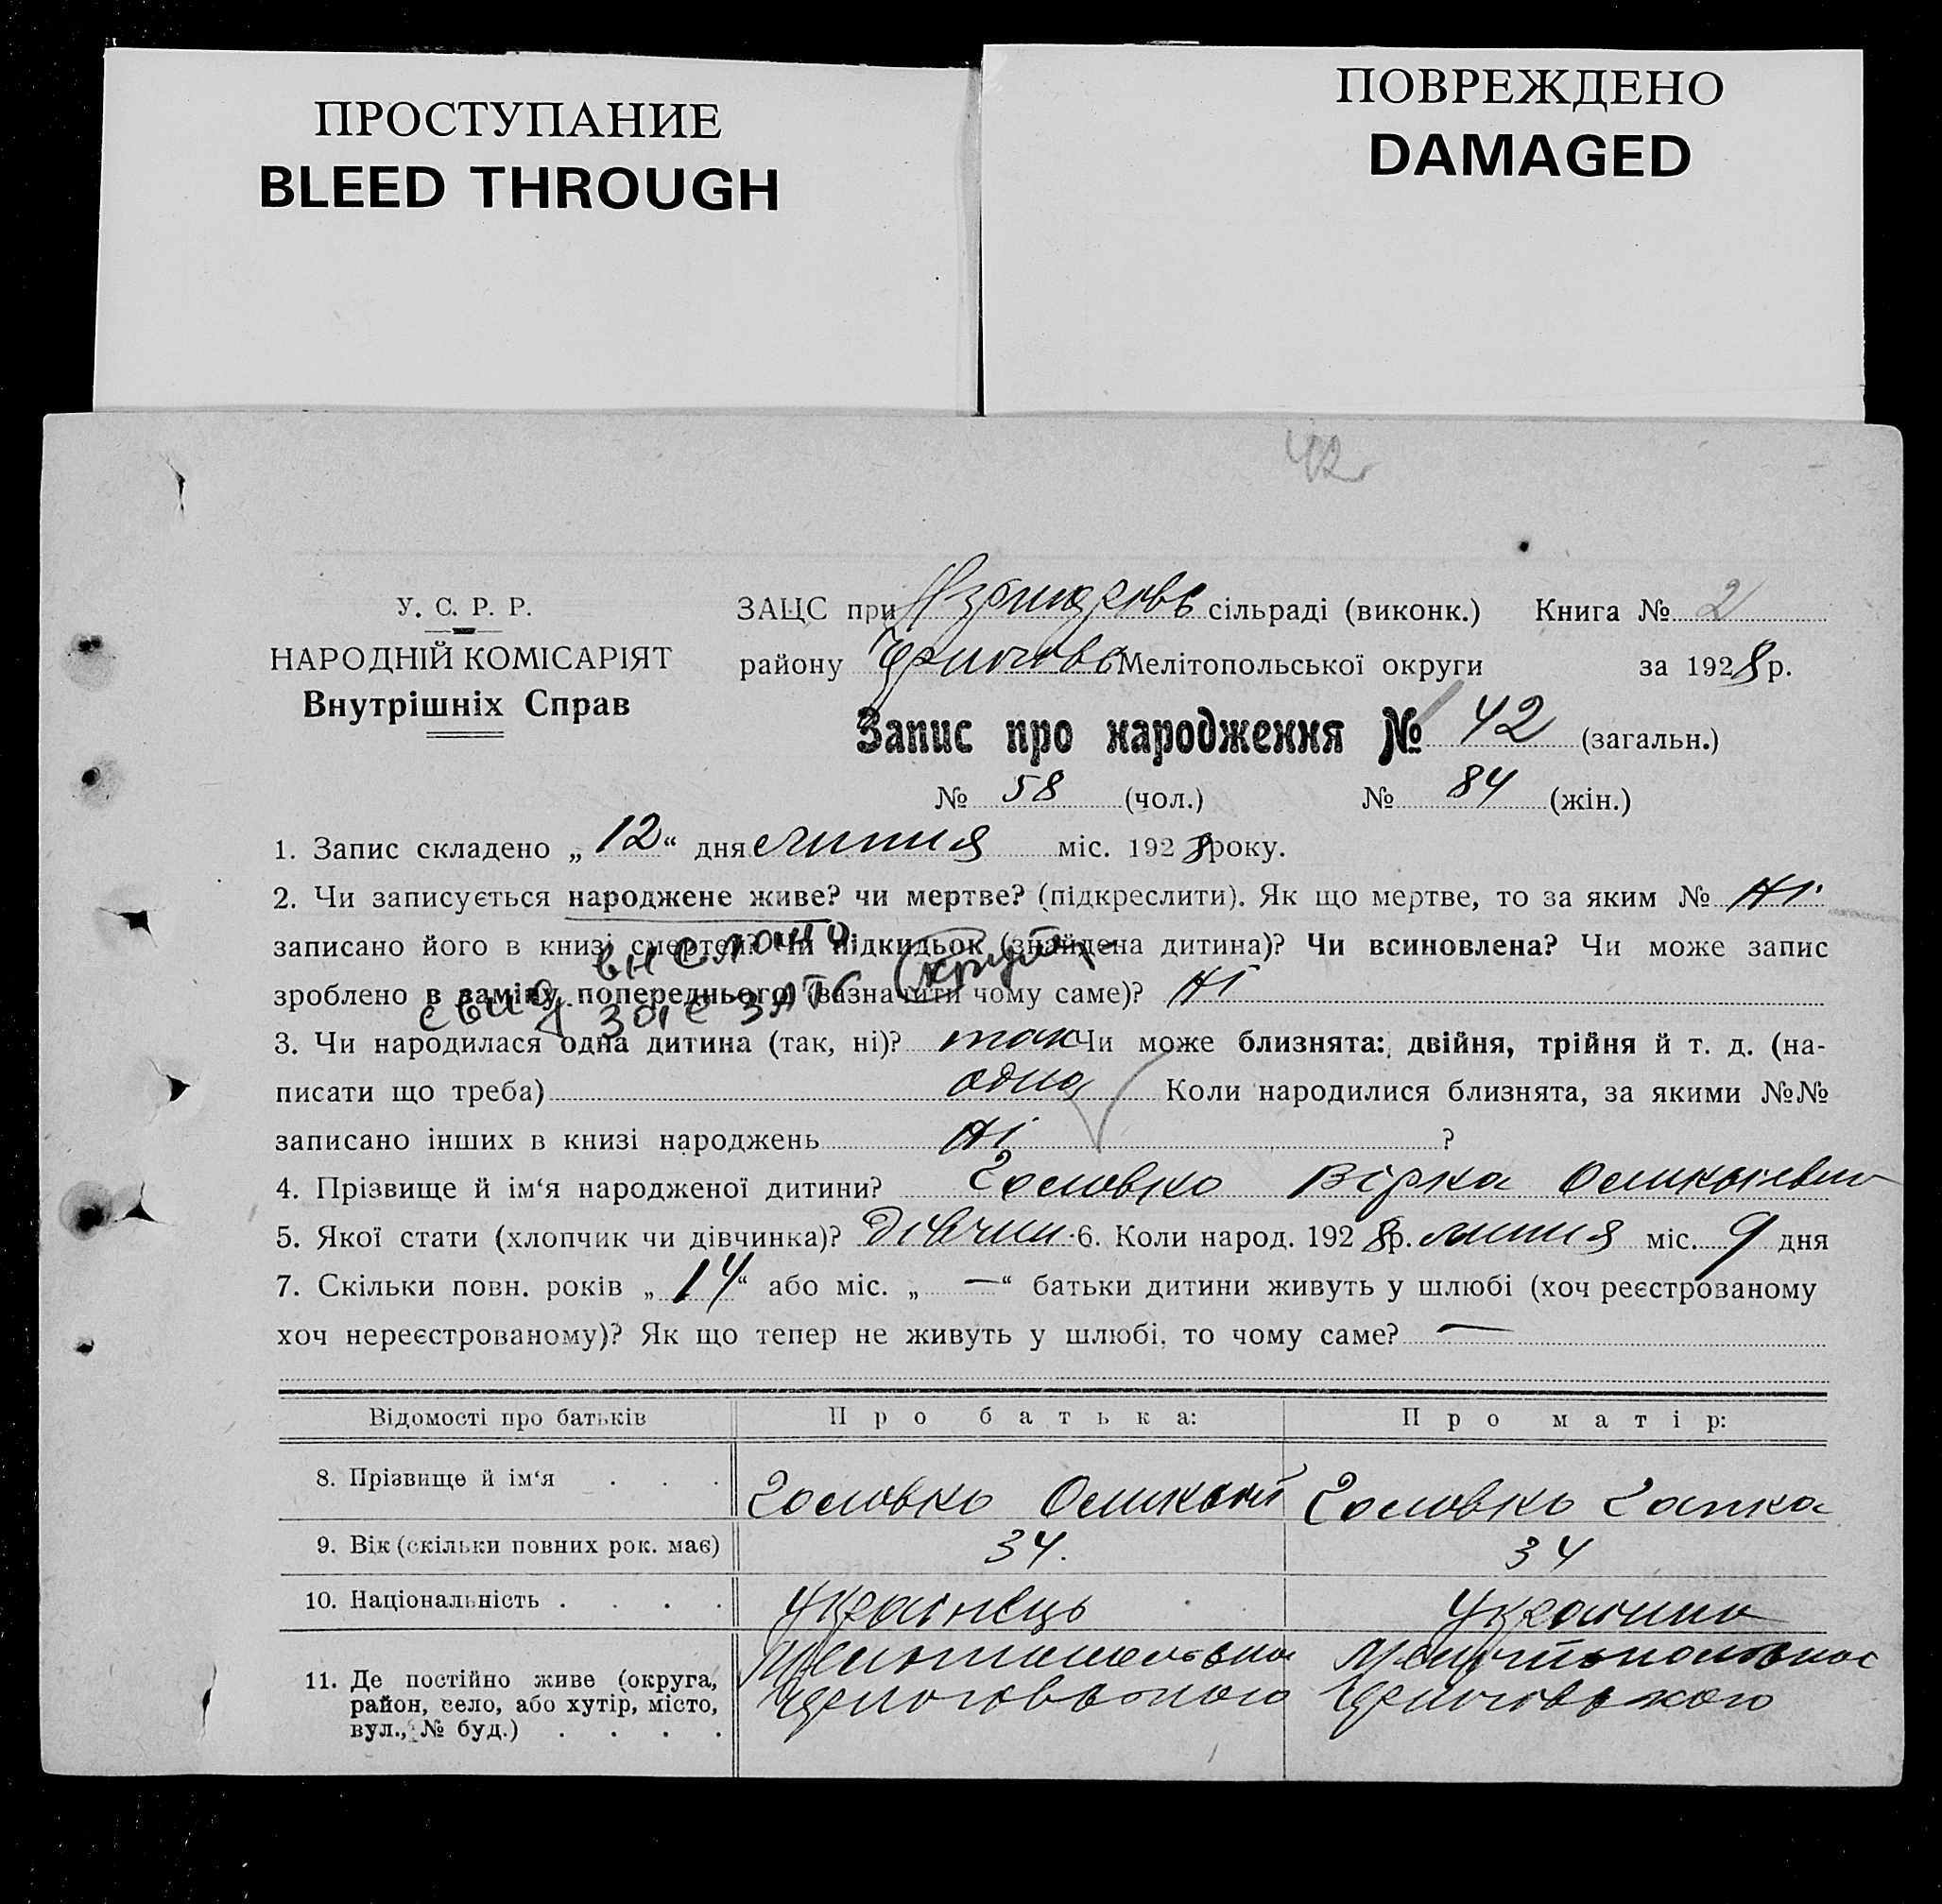 ПРОСТУПАНИЕ
BLEED THROUGH
ПОВРЕЖДЕНО
DAMAGED
42
У. С. Р. Р.
НАРОДНІЙ КОМІСАРІЯТ
Внутрішніх Справ
ЗАЦС при сільраді (виконк.) Книга № 2
району Мелітопольської округи за 1928 р.
Запис про народження № 42 (загальн.)
№ 58 (чол.) № 84 (жін.)
1. Запис складено „ 12 “ дня липня міс. 1928 року.
2. Чи записується народжене живе? чи мертве? (підкреслити). Як що мертве, то за яким № Ні
записано його в книзі смертей? Чи підкидьок (знайдена дитина)? Чи всиновлена? Чи може запис
зроблено в заміну попереднього) (зазначити чому саме)? Ні
вислано
3. Чи народилася одна дитина (так, ні)? так Чи може близнята: двійня, трійня й т. д. (на-
писати що треба) одна Коли народилися близнята, за якими №№
записано інших в книзі народжень Ні ?
4. Прізвище й ім‘я народженої дитини? Головко Вірка
5. Якої стати (хлопчик чи дівчинка)? дівчин. 6. Коли народ. 1928 р. липня міс. 9 дня
7. Скільки повн. років „ 14 “ або міс. „ — “ батьки дитини живуть у шлюбі (хоч реєстрованому
хоч нереєстрованому)? Як що тепер не живуть у шлюбі, то чому саме? —
Відомості про батьків Про батька: Про матір:
8. Прізвище й ім‘я . . . Головко Головко Гапка
9. Вік (скільки повних рок. має) 34. 34
10. Національність . . . . Українець Українка
11. Де постійно живе (округа,
район, село, або хутір, місто,
вул., № буд.) . . . .